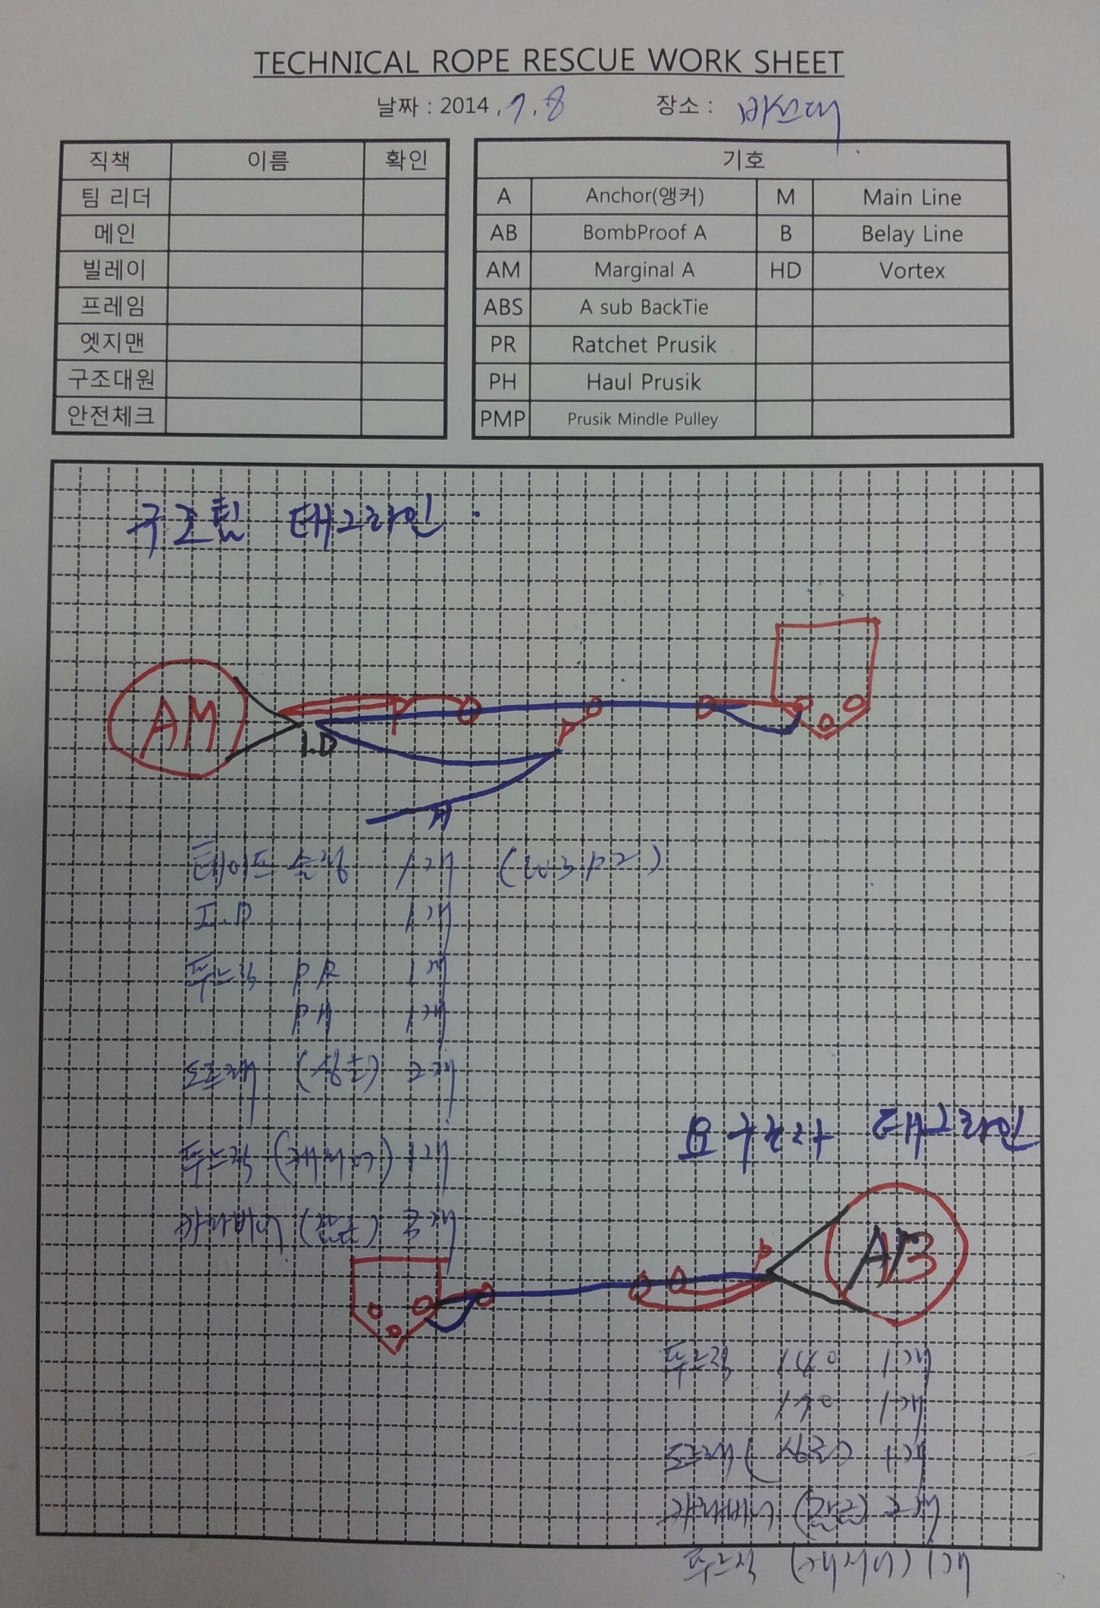 TECHNICAL ROPE RESCUE WORK SHEET
날짜 : 2014 . 7 . 8 장소 :
직책 이름 확인
팀 리더
메인
빌레이
프레임
엣지맨
구조대원
안전체크
기호
A Anchor(앵커) M Main Line
AB BombProof A B Belay Line
AM Marginal A HD Vortex
ABS A sub BackTie
PR Ratchet Prusik
PH Haul Prusik
PMP Prusik Mindle Pulley
구조팀 태그라인
AM
I.D
P
P
테이프 슬링 1개 (W3P2)
I.D 1개
푸르직 PR 1개
PH 1개
도르래 (싱글) 2개
푸르직 1개
카라비너 (잠금)
요구조자 태그라인
P
푸르직 140 1개
170 1개
도르래 (싱글) 1개
카라비너 (잠금) 2개
푸르직 1개